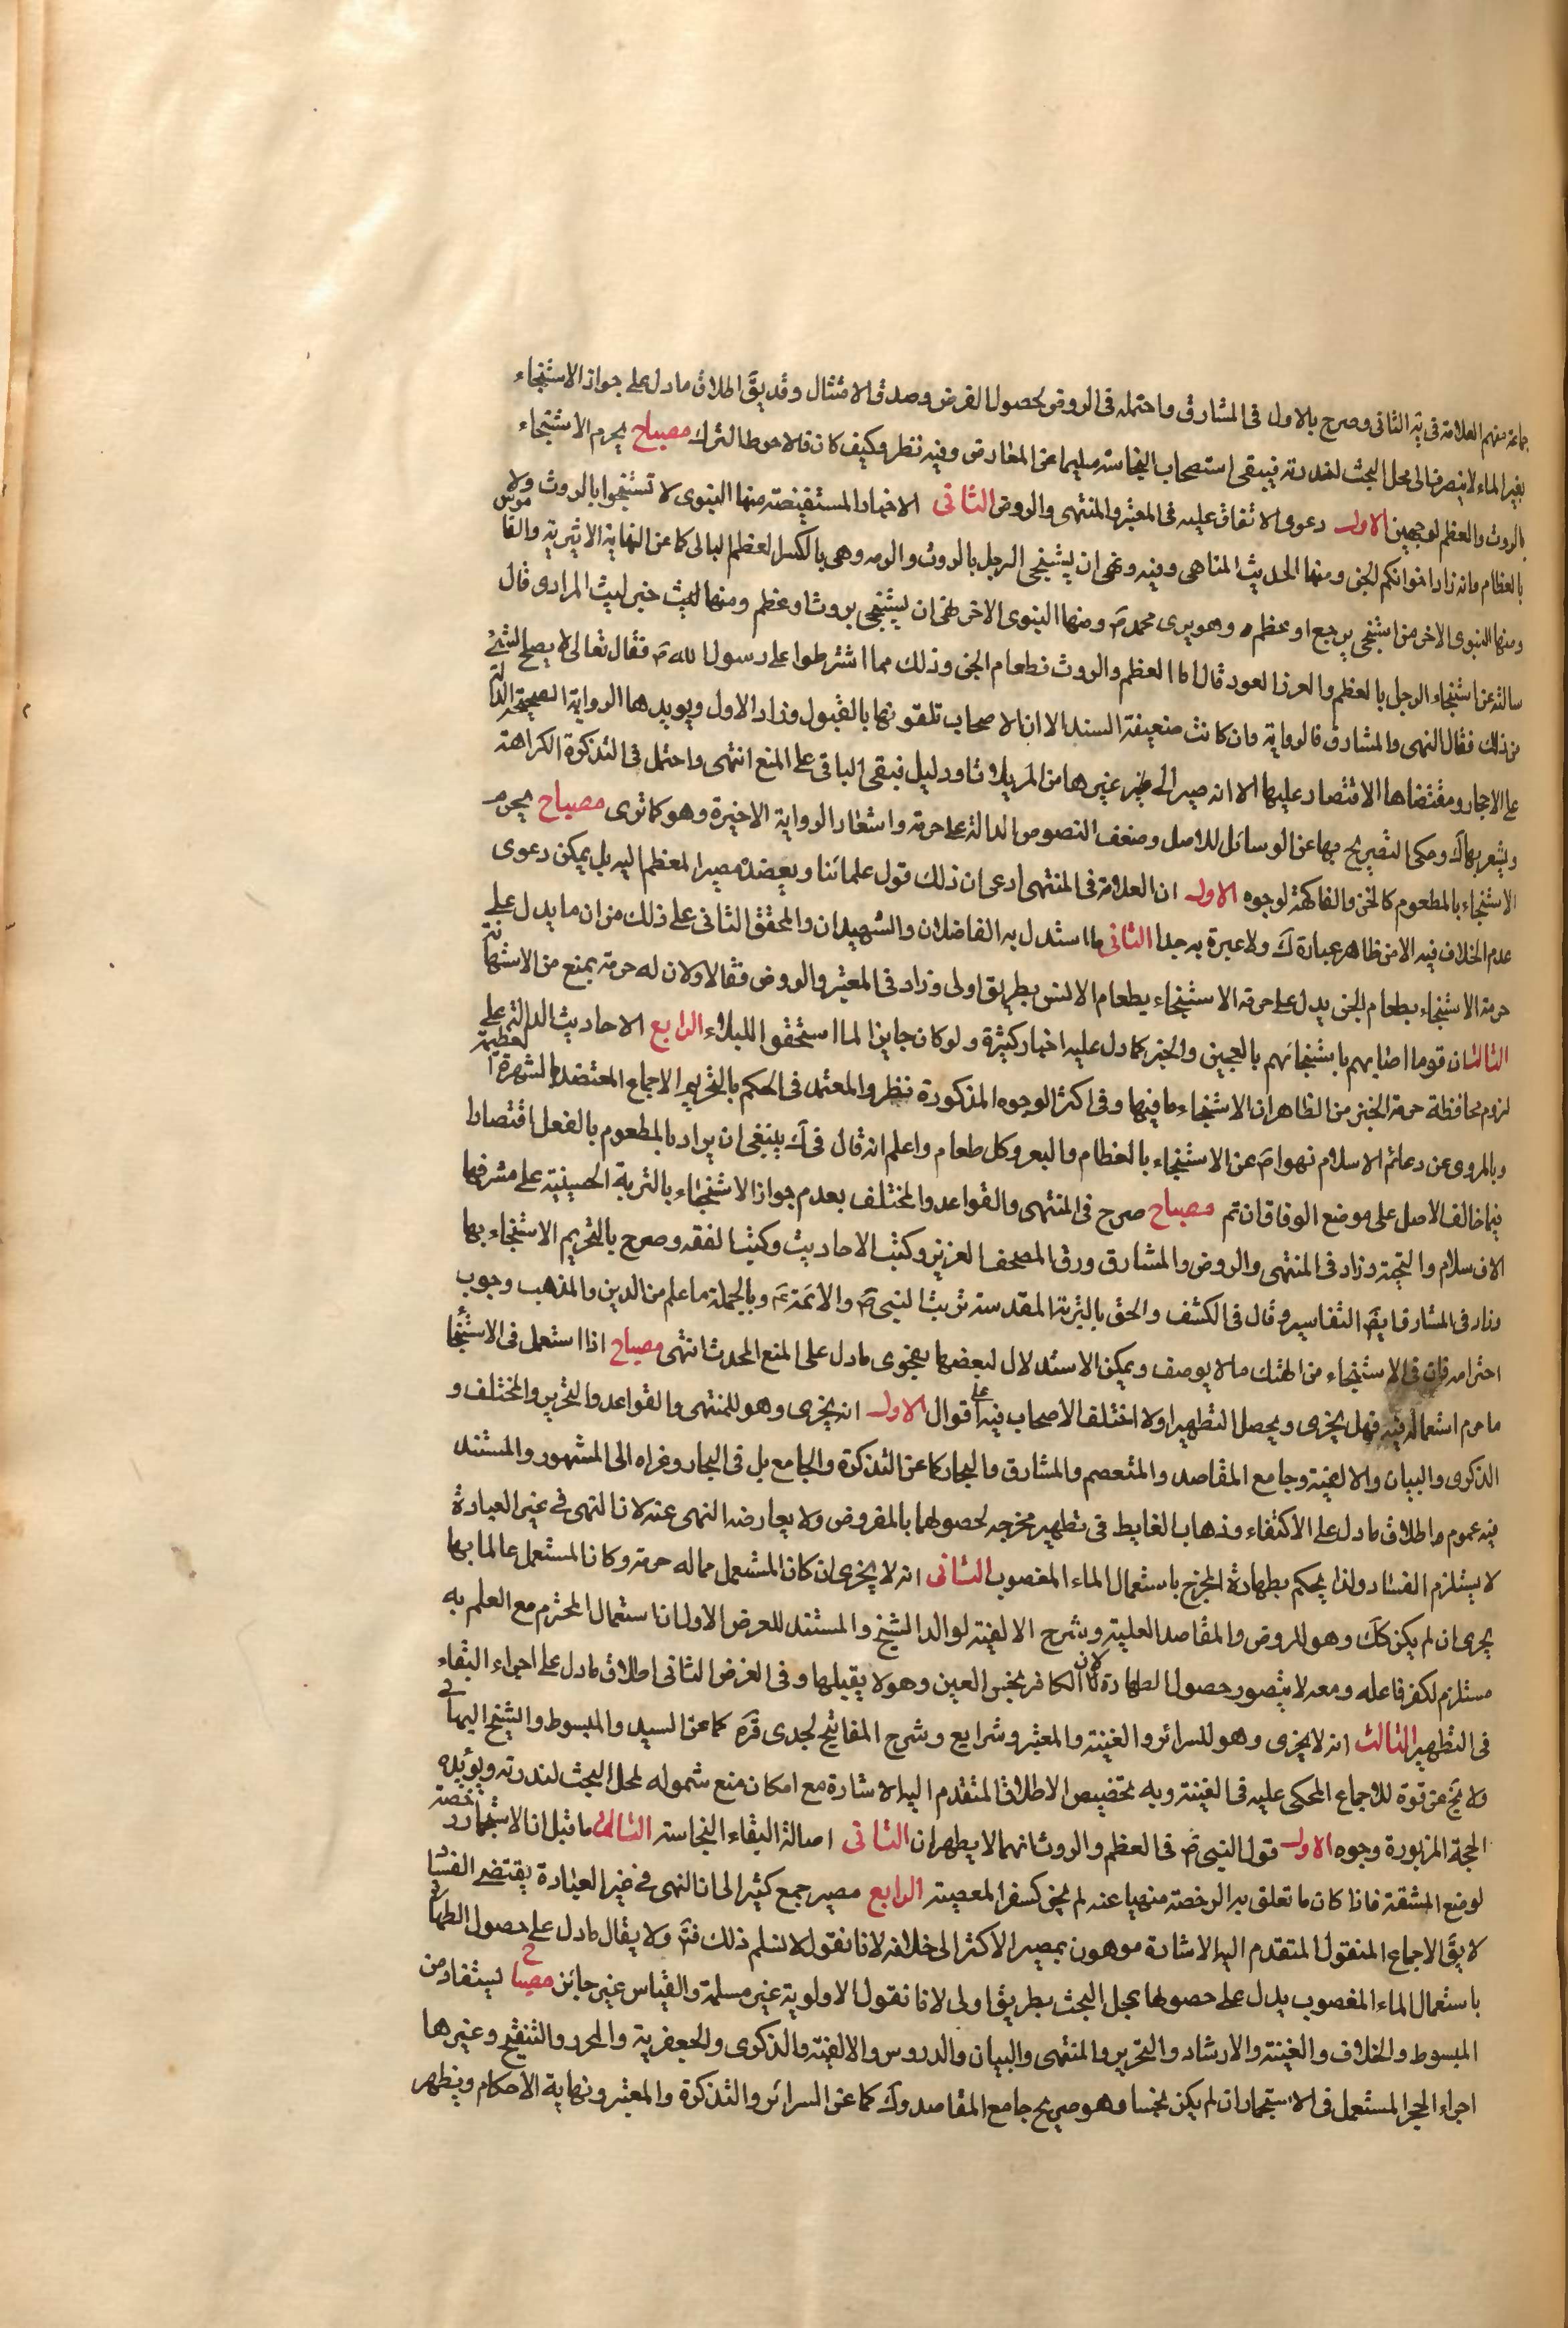 جماعة منهم العلامة فى يه الثانى وصرح بالاول فى المشارق واحتمله فى الروض لحصول الغرض وصدق الامتثال وقد يقَ اطلاق ما دل على جواز الاستنجاء
بغير الماء لا ينصرف الى محل البحث لندرته فيبقى استصحاب النجاسة سليما عن المعارض وفيه نظر وكيف كان فلاحوط الترك مصباح يحرم الاستنجاء
بالروث والعظم لوجهين الاول دعوى الاتفاق عليه فى المعتبر والمنتهى والروض الثانى الاخبار المستفيضة منها النبوى لا تستنجوا بالروث ولا
بالعظام فانه زاد اخوانكم الجن ومنها الحديث المناهى وفيه ونهى ان يستنجى الرجل بالروث والرمه وهى بالكسر العظم البالى كما عن النهاية الاثيرية والقاموس
ومنها النبوى الاخر من استنجى برجيع او عظم فهو برى محمد صَ ومنها النبوى الاخر نهى ان يستنجى بروث او عظم ومنها ليث خبر ليث المرادى قال
سالته عن استنجاء الرجل بالعظم والعر العود قال اما العظم والروث فطعام الجن وذلك مما اشترطوا على رسول الله صَ فقال تعالى لا يصلح الشئ
من ذلك فقال النهى والمشارق فالرواية وان كانت ضعيفة السند الا ان الاصحاب تلقونها بالقبول وزاد الاول ويويدهما الرواية الصحيحة الدالة
على الاحجار ومقتضاها الاقتصار عليها الا انه صير الى غير غيرها من المزيلات اودليل فبقى الباقى على المنع انتهى واحتمل فى التذكرة الكراهة
ويشعر بها كَ وحكى التصريح بها عن الوسائل للاصل وضعف النصوص الدالة على حرمة واشعار الرواية الاخيرة وهو كما ترى مصباح يحرم
الاستنجاء بالمطعوم كالخبز والفاكهة لوجوه الاول ان العلامة فى المنتهى ادعى ان ذلك قول علمائنا ويعضده مصير المعظم اليه بل يمكن دعوى
عدم الخلاف فيه الا من ظاهر عبارة كَ ولا عبرة به جدا الثانى ما استدل به الفاضلان والشهيدان والمحقق الثانى على ذلك من ان ما يدل على
حرمة الاستنجاء بطعام الجن يدل على حرمة الاستنجاء بطعام الانس بطريق اولى وزاد فى المعتبر والروض فقالا ولان له حرمة يمنع من الاستهانة
الثالث ان قوما اصابهم باستنجائهم بالعجين والخبز كما دل عليه اخبار كثيرة ولو كان جايزا لما استحقوا البلاء الرابع الاحاديث الدالة على
لزوم محافظة حرمة الخبز من الظاهر ان الاستنجاء ما فيها وفى اكثر الوجوه المذكورة نظر والمعتمد فى الحكم بالتحريم الاجماع المعتضد بالشهرة العظيمة
وبالمروى عن دعائم الاسلام نهوا صَ عن الاستنجاء بالعظام والبعر وكل طعام واعلم انه قال فى كَ ينبغى ان يراد بالمطعوم بالفعل اقتصارا
فيما خالف الاصل على موضع الوفاق ان تم مصباح صرح فى المنتهى والقواعد والمختلف بعدم جواز الاستنجاء بالتربة الحسينية على مشرفها
الاف سلام والتحية وزاد فى المنتهى والروض والمشارق ورق المصحف العزيز وكتب الاحاديث وكتب الفقه وصرح بالتحريم الاستنجاء بها
وزاد فى المشارق ايضَ التفاسير وقال فى الكشف والحق بالتربة المقدسة تربت النبى صَ والائمة عَ وبالجملة ما علم من الدين والمذهب وجوب
احترامه فان فى الاستنجاء من الهتك ما لا يوصف ويمكن الاستدلال لبعضها بفحوى ما دل على المنع المحدث انتهى مصباح اذا استعمل فى الاستنجا
ما حرم استعماله فيه فهل يجزى ويحصل التطهير اولا اختلف الاصحاب فيه على اقوال الاول انه يجزى وهو للمنتهى والقواعد والتحرير والمختلف و
الذكرى والبيان والالفية وجامع المقاصد والمتعصم والمشارق والبحار كما عن التذكرة والجامع بل فى البحار وغراه الى المشهور والمستند
فيه عموم واطلاق ما دل على الاكتفاء وذهاب الغايط فى تطهير مخرجه لحصولها بالمفروض ولا يعارضه النهى عنه لان النهى فى غير العبادة
لا يستلزم الفساد ولذا يحكم بطهارة المخرج باستعمال الماء المغصوب الثانى انه لا يجزى ان كان المستعمل مما له حرمة وكان المستعمل عالما بها
يجرى ان لم يكن ككَ وهو للروض والمقاصد العلية وشرح الالفية لوالد الشيخ والمستند للعرض الاول ان استعمال المحترم مع العلم به
مستلزم لكفر فاعله ومعه لا يتصور حصول الطهارة لان الكافر نجس العين وهو لا يقبلها وفى الغرض الثانى اطلاق ما دل على اجراء البقاء
فى التطهير الثالث انه لا يجزى وهو للسرائر والغنية والمعتبر وشرايع وشرح المفاتيح لجدى قده كما عن السيد والمبسوط والشيخ اليها فى
ولا يخَ عن قوة للاجماع المحكى عليه فى الغنية وبه تخصيص الاطلاق المتقدم اليه الاشارة مع امكان منع شموله لمحل البحث لندرته ويؤيده
الحجة المزبورة وجوه الاول قول النبى صَ فى العظم والروث انهما لا يطهران الثانى اصالة البقاء النجاسة الثالث ما قيل ان الاستجمار رخصة
لوضع المشقة فاذا كان ما تعلق به الرخصة منهيا عنه لم يجز كسفر المعصية الرابع مصير جمع كثير الى ان النهى فى غير العبادة يقتضى الفساد
لا يقَ الاجماع المنقول المتقدم اليه الاشارة موهون بمصير الاكثر الى خلافه لانا نقول لا نسلم ذلك فتَ ولا يقال ما دل على حصول الطهارة
باستعمال الماء المغصوب يدل على حصولها بمحل البحث بطريق اولى لانا نقول الاولوية غير مسلمة والقياس غير جائز مصباح يستفاد من
المبسوط والخلاف والغنية والارشاد والتحرير والمنتهى والبيان والدروس والالفية والذكرى والجعفرية والمحرر والتنقيح وغيرها
اجراء الحجر المستعمل فى الاستجمار ان لم يكن نجسا وهو صريح جامع المقاصد وكَ كما عن السرائر والتذكرة والمعتبر ونهاية الاحكام ويظهر